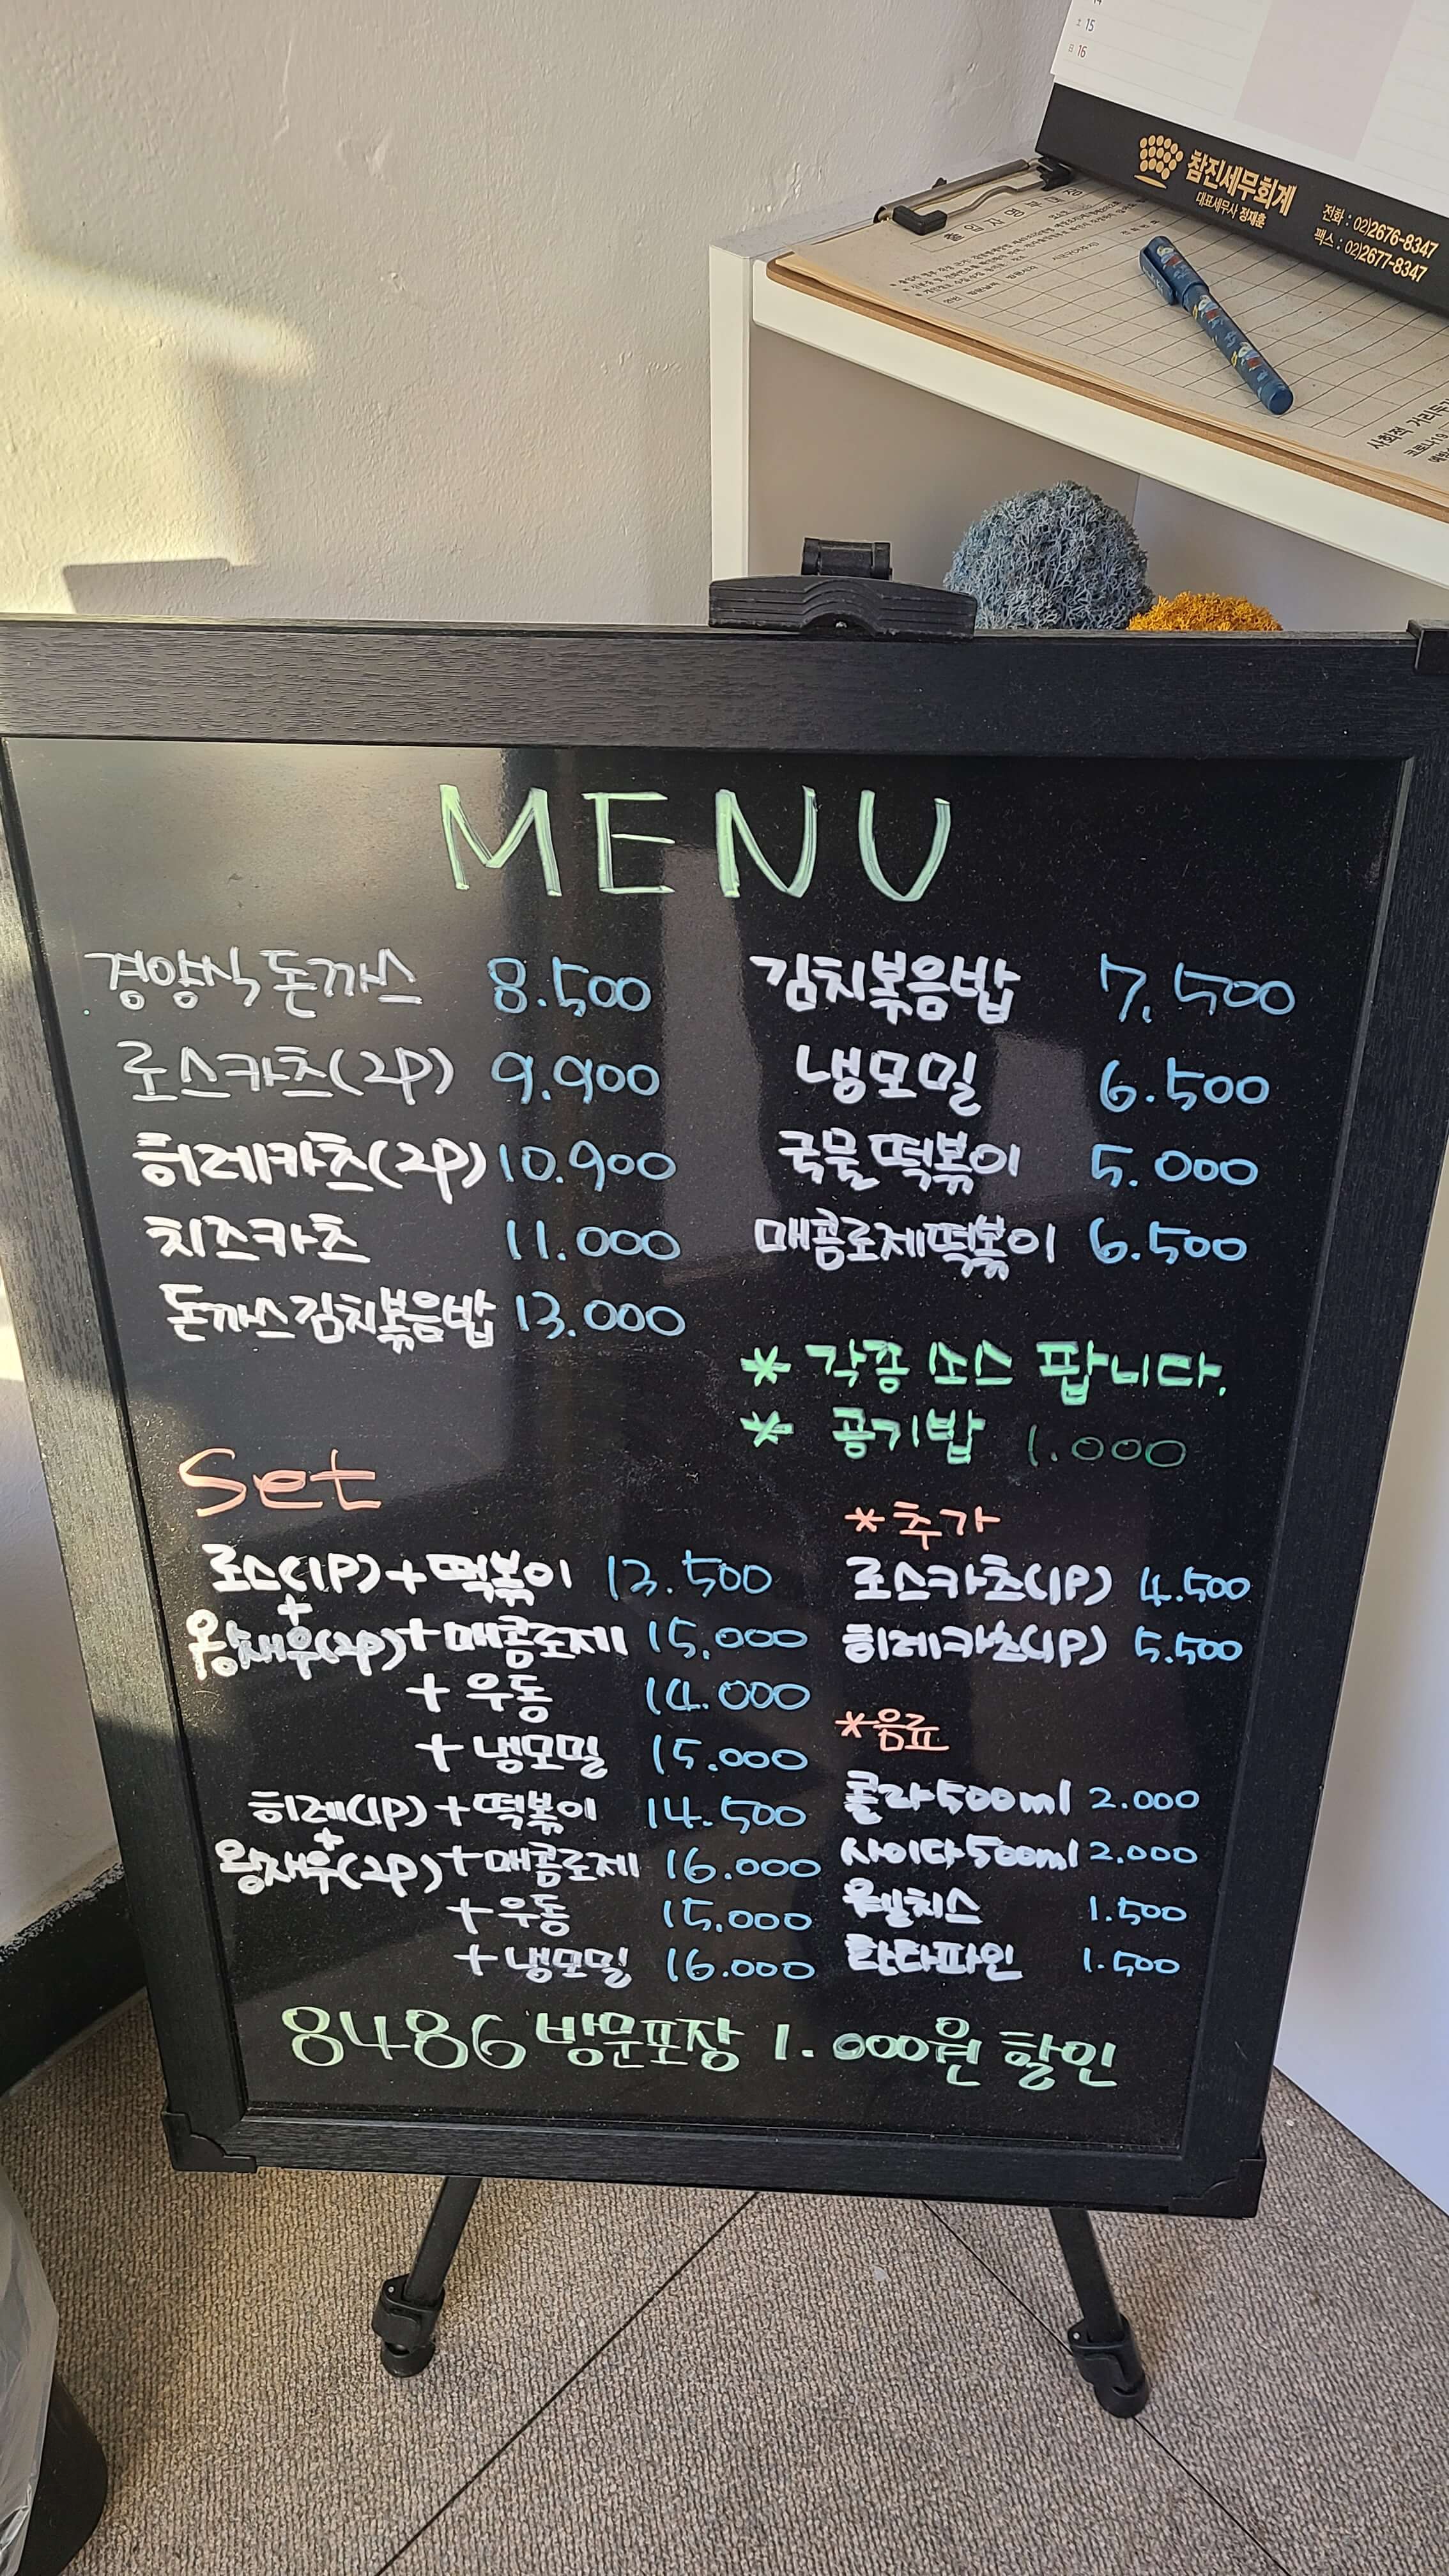 15
日 16
참진세무회계
대표세무사 정재훈
전화 : 02)2676-8347
팩스 : 02)2677-8347
출입자 명부 대장
사회적 거리두기
코로나19
MENU
경양식 돈까스 8.500
로스카츠(2P) 9.900
히레카츠(2P) 10.900
치즈카츠 11.000
돈까스김치볶음밥 13.000
김치볶음밥 7.500
냉모밀 6.500
국물떡볶이 5.000
매콤로제떡볶이 6.500
* 각종 소스 팝니다.
* 공기밥 1.000
Set
로스(1P)+떡볶이 13.500
+
왕새우(2P)+매콤로제 15.000
+우동 14.000
+냉모밀 15.000
히레(1P)+떡볶이 14.500
+
왕새우(2P)+매콤로제 16.000
+우동 15.000
+냉모밀 16.000
*추가
로스카츠(1P) 4.500
히레카츠(1P) 5.500
*음료
콜라500ml 2.000
사이다500ml 2.000
웰치스 1.500
환타파인 1.500
8486 방문포장 1.000원 할인